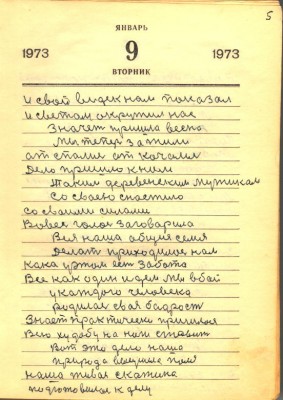 5
ЯНВАРЬ
1973 9 1973
ВТОРНИК
и свой видек нам показал
и светом окрутил нас
Значет пришла весна
Мы тепер
от спали от качались
Дело пришло к ним
Таким деревенским мужикам
Со своею снастию
со своими силами
Вовсе голос заговорила
Вся наша общия семя
Делат приходилос нам
Кака у том ест забота
Все как один идем мы в бой
у каждого человека
родилас свая бадрост
Знает практически пришлося
Всю худобу на ноги ставит
Вот это дело наше
природа
наша живая скатина
подготовилас к делу